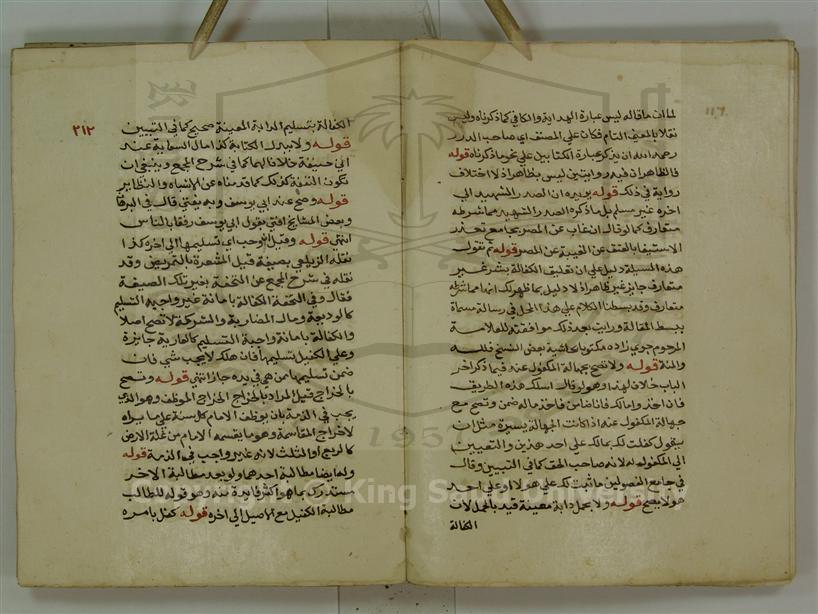 ١١٦
لما ان ما قاله ليس عبارة الهداية والكافي كما ذكرناه وليس
نقلا بالمعنى التام فكان على المصنف اي صاحب الدرر
رحمه الله ان يذكر عبارة الكتابين على نحو ما ذكرناه قوله
فالظاهر ان فيه روايتين ليس بظاهر اذ لا اختلاف
رواية في ذلك قوله يويده ان الصدر الشهيد الى
اخره غير مسلم بل ما ذكره الصدر الشهيد مما شرطه
متعارف كما لو قال ان غاب عن المصر بجامع تعذر
الاستيفا بالعتق عن الغيبة عن المصر قوله ثم نقول
هذه المسيلة دليل على ان تعليق الكفالة بشرط غير
متعارف جايز غير ظاهر اذ لا دليل بما ظهر لك انها مما شرطه
متعارف وقد بسطنا الكلام على هذا المحل في رسالة مسماة
ببسط المقالة ورايت بعد ذلك موافقته للعلامة
المرحوم جوي زاده مكتوبا بحاشية بعض النسخ فلله
والمنة قوله ولا تصح بجهالة المكفول عنه وفيما ذكر اخر
الباب خلاف لهذا وهو لو قال اسلك هذه الطريق
فان اخذ مالك فانا ضامن فاخذ ماله ضمن وتصح مع
جهالة المكفول عنه اذا كانت الجهالة يسيرة مثل ان
يقول كفلت لك بمالك على احد هذين والتعيين
الى المكفول له لانه صاحب الحق كما في التبيين وقال
في جامع الفصولين ما ثبت لك على هولا او على احد
هولا يصح قوله ولا بحمل دابة معينة قيد بالحمل لان
الكفالة
٢١٢
الكفالة بتسليم الدابة المعينة صحيح كما في التبيين
قوله ولا ببدل الكتابة كذا مال السعاية عند
ابي حنيفة خلافا لهما كما في شرح المجمع وينبغي ان
تكون النفقة كذلك كما قدمناه عن الاشباه والنظاير
قوله وصح عند ابي يوسف وبه يفتى قال في البرها
وبعض المشايخ افتى بقول ابي يوسف رفقا بالناس
انتهى قوله وقيل ان وجب اي تسليمها الى اخره كذا
نقله الزيلعي بصيغة قيل المشعرة بالتمريض وقد
نقله في شرح المجمع عن التحفة بغير تلك الصيغة
فقال وفي التحفة الكفالة بامانة غير واجبة التسليم
كالوديعة ومال المضاربة والشركة لا تصح اصلا
والكفالة بامانة واجبة التسليم كالعارية جايزة
وعلى الكفيل تسليمها فان هلك لا يجب شي فان
ضمن تسليمها ممن هي في يده جاز انتهى قوله وتصح
بالخراج قيل المراد بالخراج الخراج الموظف وهو الذي
يجب في الذمة بان يوظف الامام كل سنة على ما يراه
لا خراج المقاسمة وهو ما يقسمه الامام من غلة الارض
كالربع او الثلث لانه غير واجب في الذمة قوله
وله ايضا مطالبة احدهما ولو بعد مطالبة الاخر
مستدرك بما هو اكثر فايدة منه وهو قوله للطالب
مطالبة الكفيل مع الاصيل الى اخره قوله كفل بامره
Copyright © King Saud University
1957